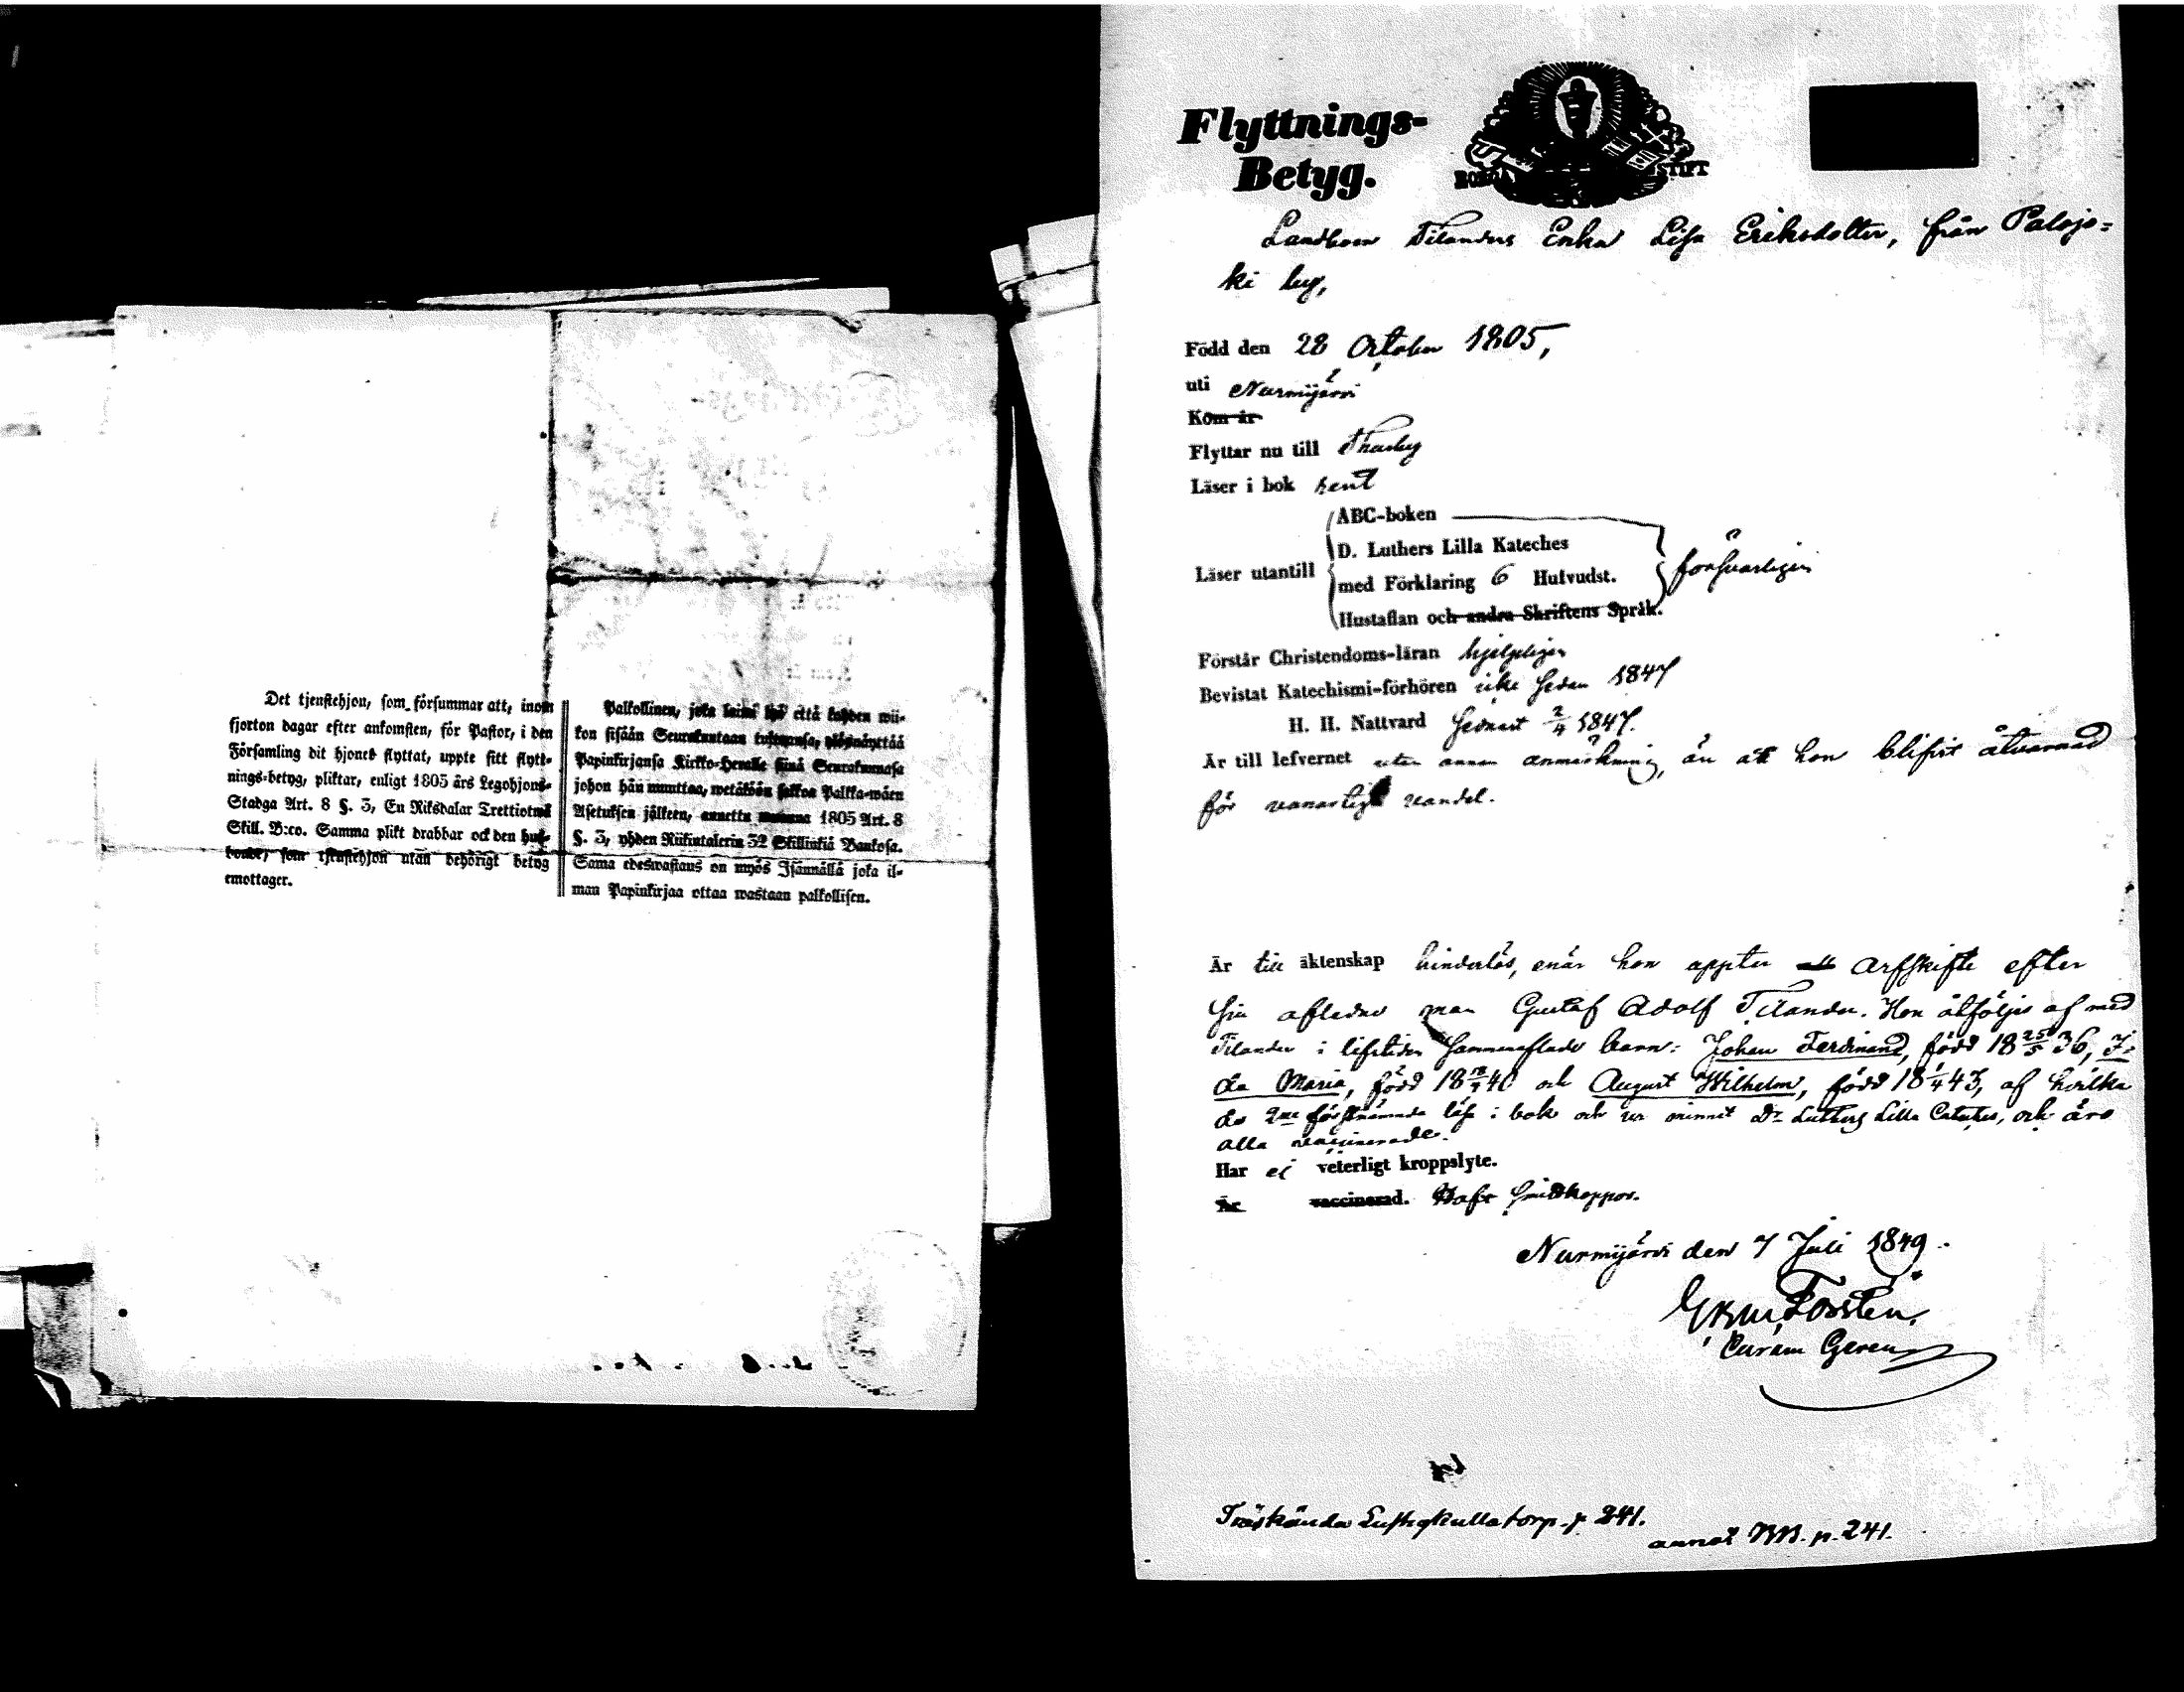 Det tjenstehjon, som försummar att, inom
fjorton dagar efter ankomsten, för Pastor, i den
Församling dit hjonet flyttat, uppte sitt flytt-
nings-betyg, pliktar, enligt 1805 års Legohjons-
Stadga Art. 8 §. 3, En Riksdalar Trettiotwå
Skill. B:co. Samma plikt drabbar ock den hus-
bonde, som tjenstehjon utan behörigt betyg
emottager.
Palkollinen, joka laimi lyö että kahden wii-
kon sisään Seurakuntaan tultuansa, ylösnäyttää
Papinkirjansa Kirkko-Herralle siinä Seurakunnasa
johon hän muuttaa, wetäköön sakkoa Palkka-wäen
Asetuksen jälkeen, annettu wuonna 1805 Art. 8
§. 3, yhden Riikintalerin 32 Skillinkiä Bankosa.
Sama edeswastaus on myös Isännällä joka il-
man Papinkirjaa ottaa wastaan palkollisen.
Flyttnings-
Betyg.
BORGÅ STIFT
Landboen Tilanders Enka Lisa Eriksdotter, från Palojo=
ki by,
Född den 28 October 1805,
uti Nurmijärvi
Kom år
Flyttar nu till Thusby
Läser i bok rent
ABC-boken
D. Luthers Lilla Kateches
Läser utantill
med Förklaring 6 Hufvudst.
försvarligen
Hustaflan och andra Skriftens Språk.
Förstår Christendoms-läran hjelpligen
Bevistat Katechismi-förhören icke sedan 1847
H. H. Nattvard senast 2/4 1847.
Är till lefvernet utan annan anmärkning, än att hon blifvit åtvarnad
för vanartig vandel.
Är till äktenskap hinderlös, enär hon uppter arfskifte efter
sin afledne man Gustaf Adolf Tilander. Hon åtföljes af med
Tilander i lifstiden sammanaflade barn: Johan Ferdinand, född 18 25/5 36, I-
da Maria, född 18 40 och August Wilhelm, född 18 1/4 43, af hvilka
de 2ne förstnämnda läsa i bok och ur minnet Dr Luthers Lilla Cateches, och äro
alla vaccinerade.
Har ej veterligt kroppslyte.
Är vaccinerad. Haft smittkoppor.
Nurmijärvi den 7 Juli 1849.
Forstén,
Curam Gerens
Träskända Lustigkulla torp p 241.
annot BB. p. 241.